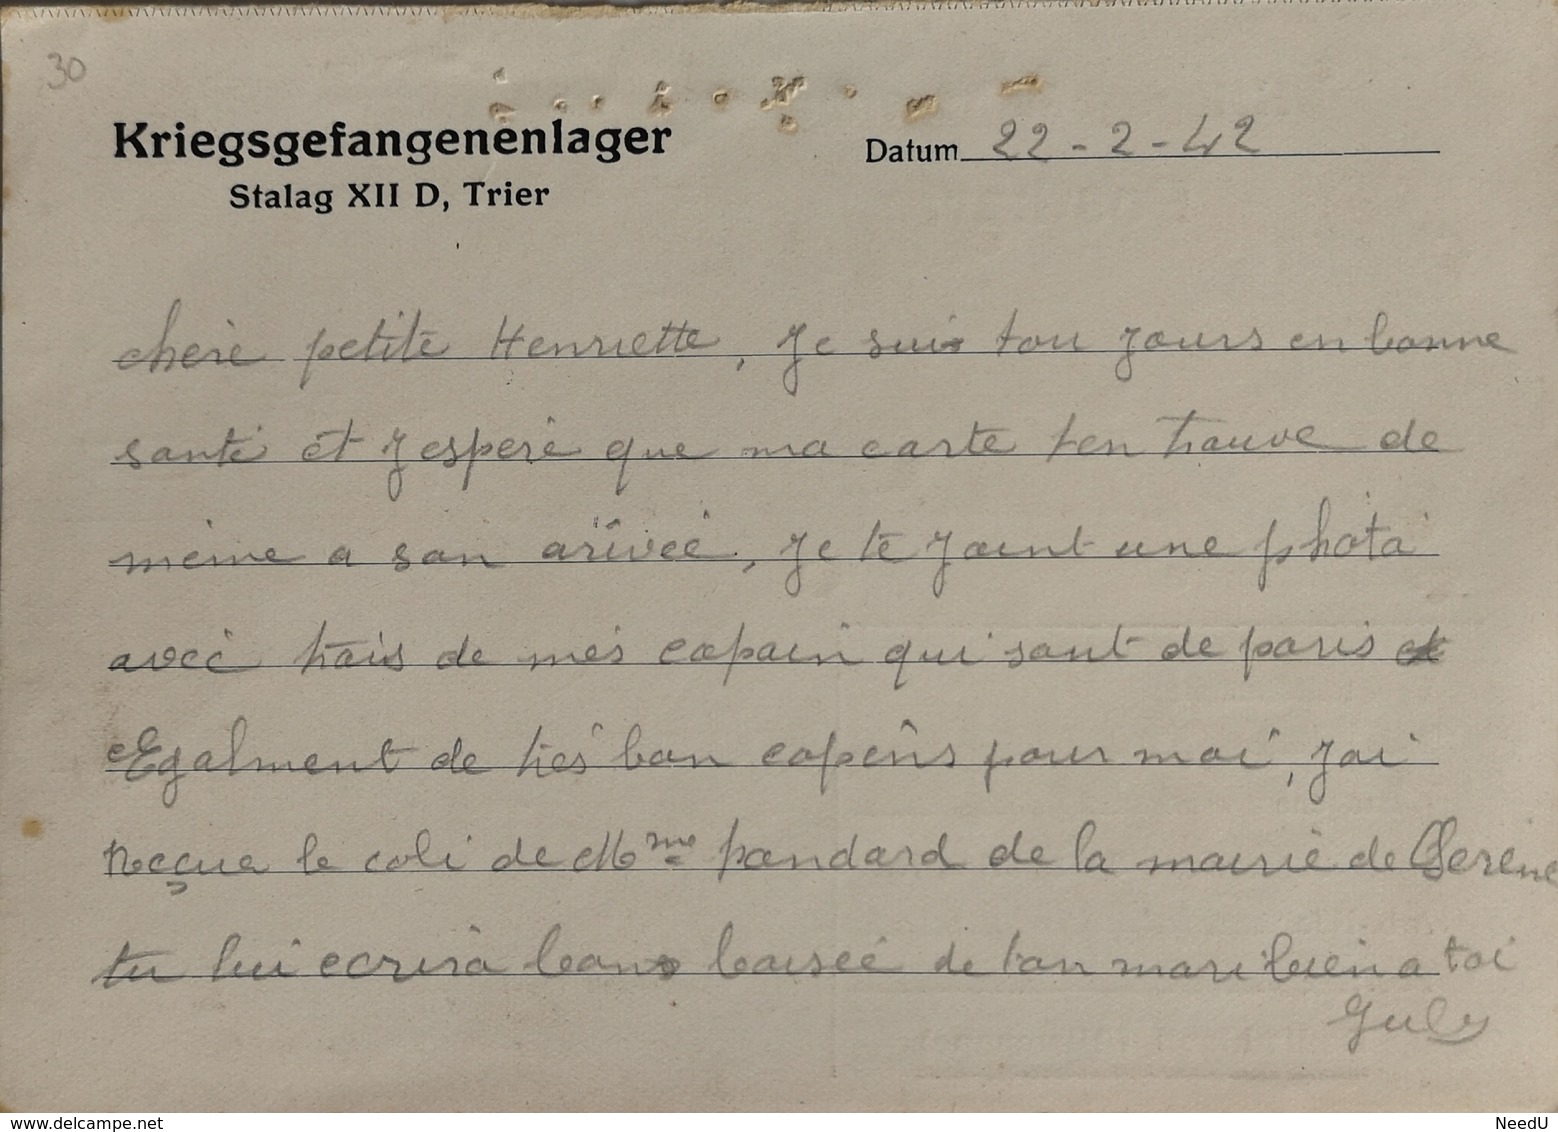 30
Kriegsgefangenenlager
Stalag XII D, Trier
Datum 22-2-42
chère petite Henriette, Je suis tou jours en bonne
santé et J espere que ma carte ten trouve de
même a son arivée, Je te Joint une photo
avec trois de mes copain qui sont de paris et
Egalment de très bon copins pour moi, J ai
Reçue le coli de Mme pandard de la mairie de
tu lui ecrira bons baisée de ton mari bien a toi
July
www.delcampe.net
NeedU